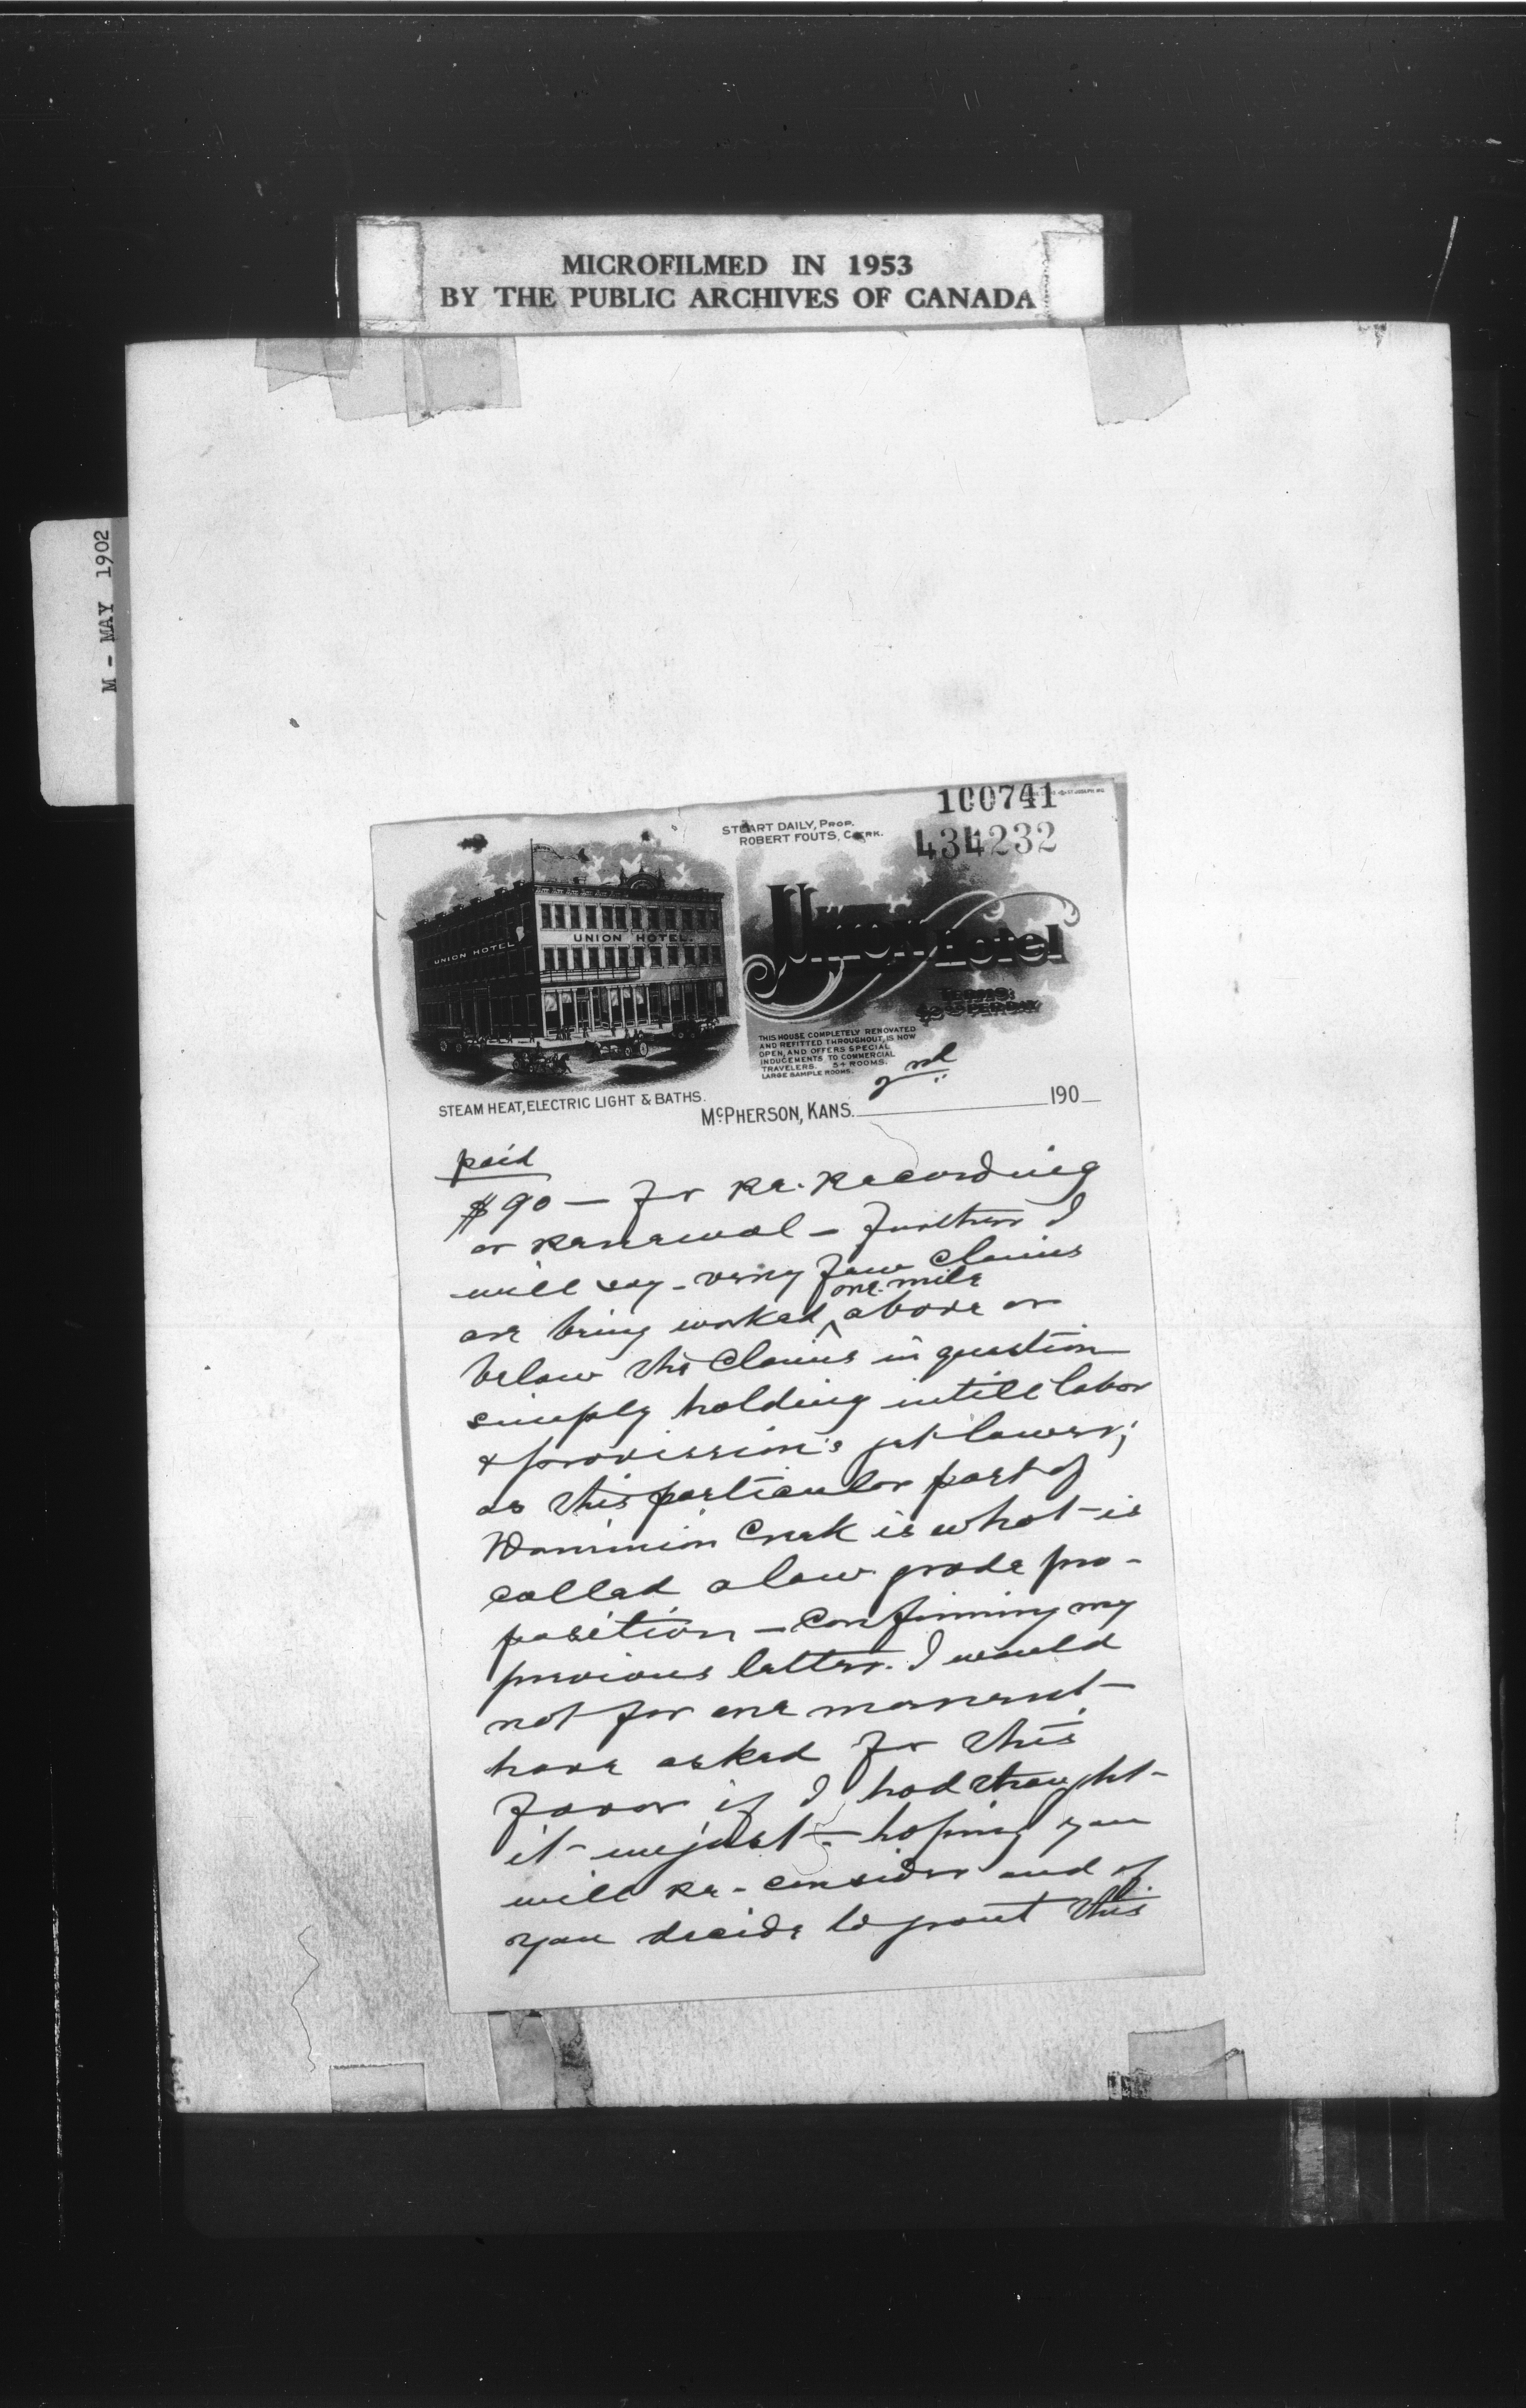 MICROFILMED IN 1953
BY THE PUBLIC ARCHIVES OF CANADA
M - MAY 1902
100741
434232
STUART DAILY, PROP.
ROBERT FOUTS, CLERK.
UNION HOTEL
UNION HOTEL.
Union Hotel
TERMS:
PER DAY
THIS HOUSE COMPLETELY RENOVATED
AND REFITTED THROUGHOUT, IS NOW
OPEN, AND OFFERS SPECIAL
INDUCEMENTS TO COMMERCIAL
TRAVELERS. 54 ROOMS.
LARGE SAMPLE ROOMS.
STEAM HEAT, ELECTRIC LIGHT & BATHS.
2nd
McPHERSON, KANS. 190
paid
$90 — for Re-Recording
or Renewal — further I
will say - very few claims
one-mile
are being worked ^ above or
below the Claims in question
simply holding until labor
& provission's get lower;
as this particular part of
Dominion Creek is what is
called a low grade pro-
position — confirming my
previous letter. I would
not for one moment
have asked for this
favor if I had thought
it unjust - hoping you
will Re-consider and if
you decide to grant this